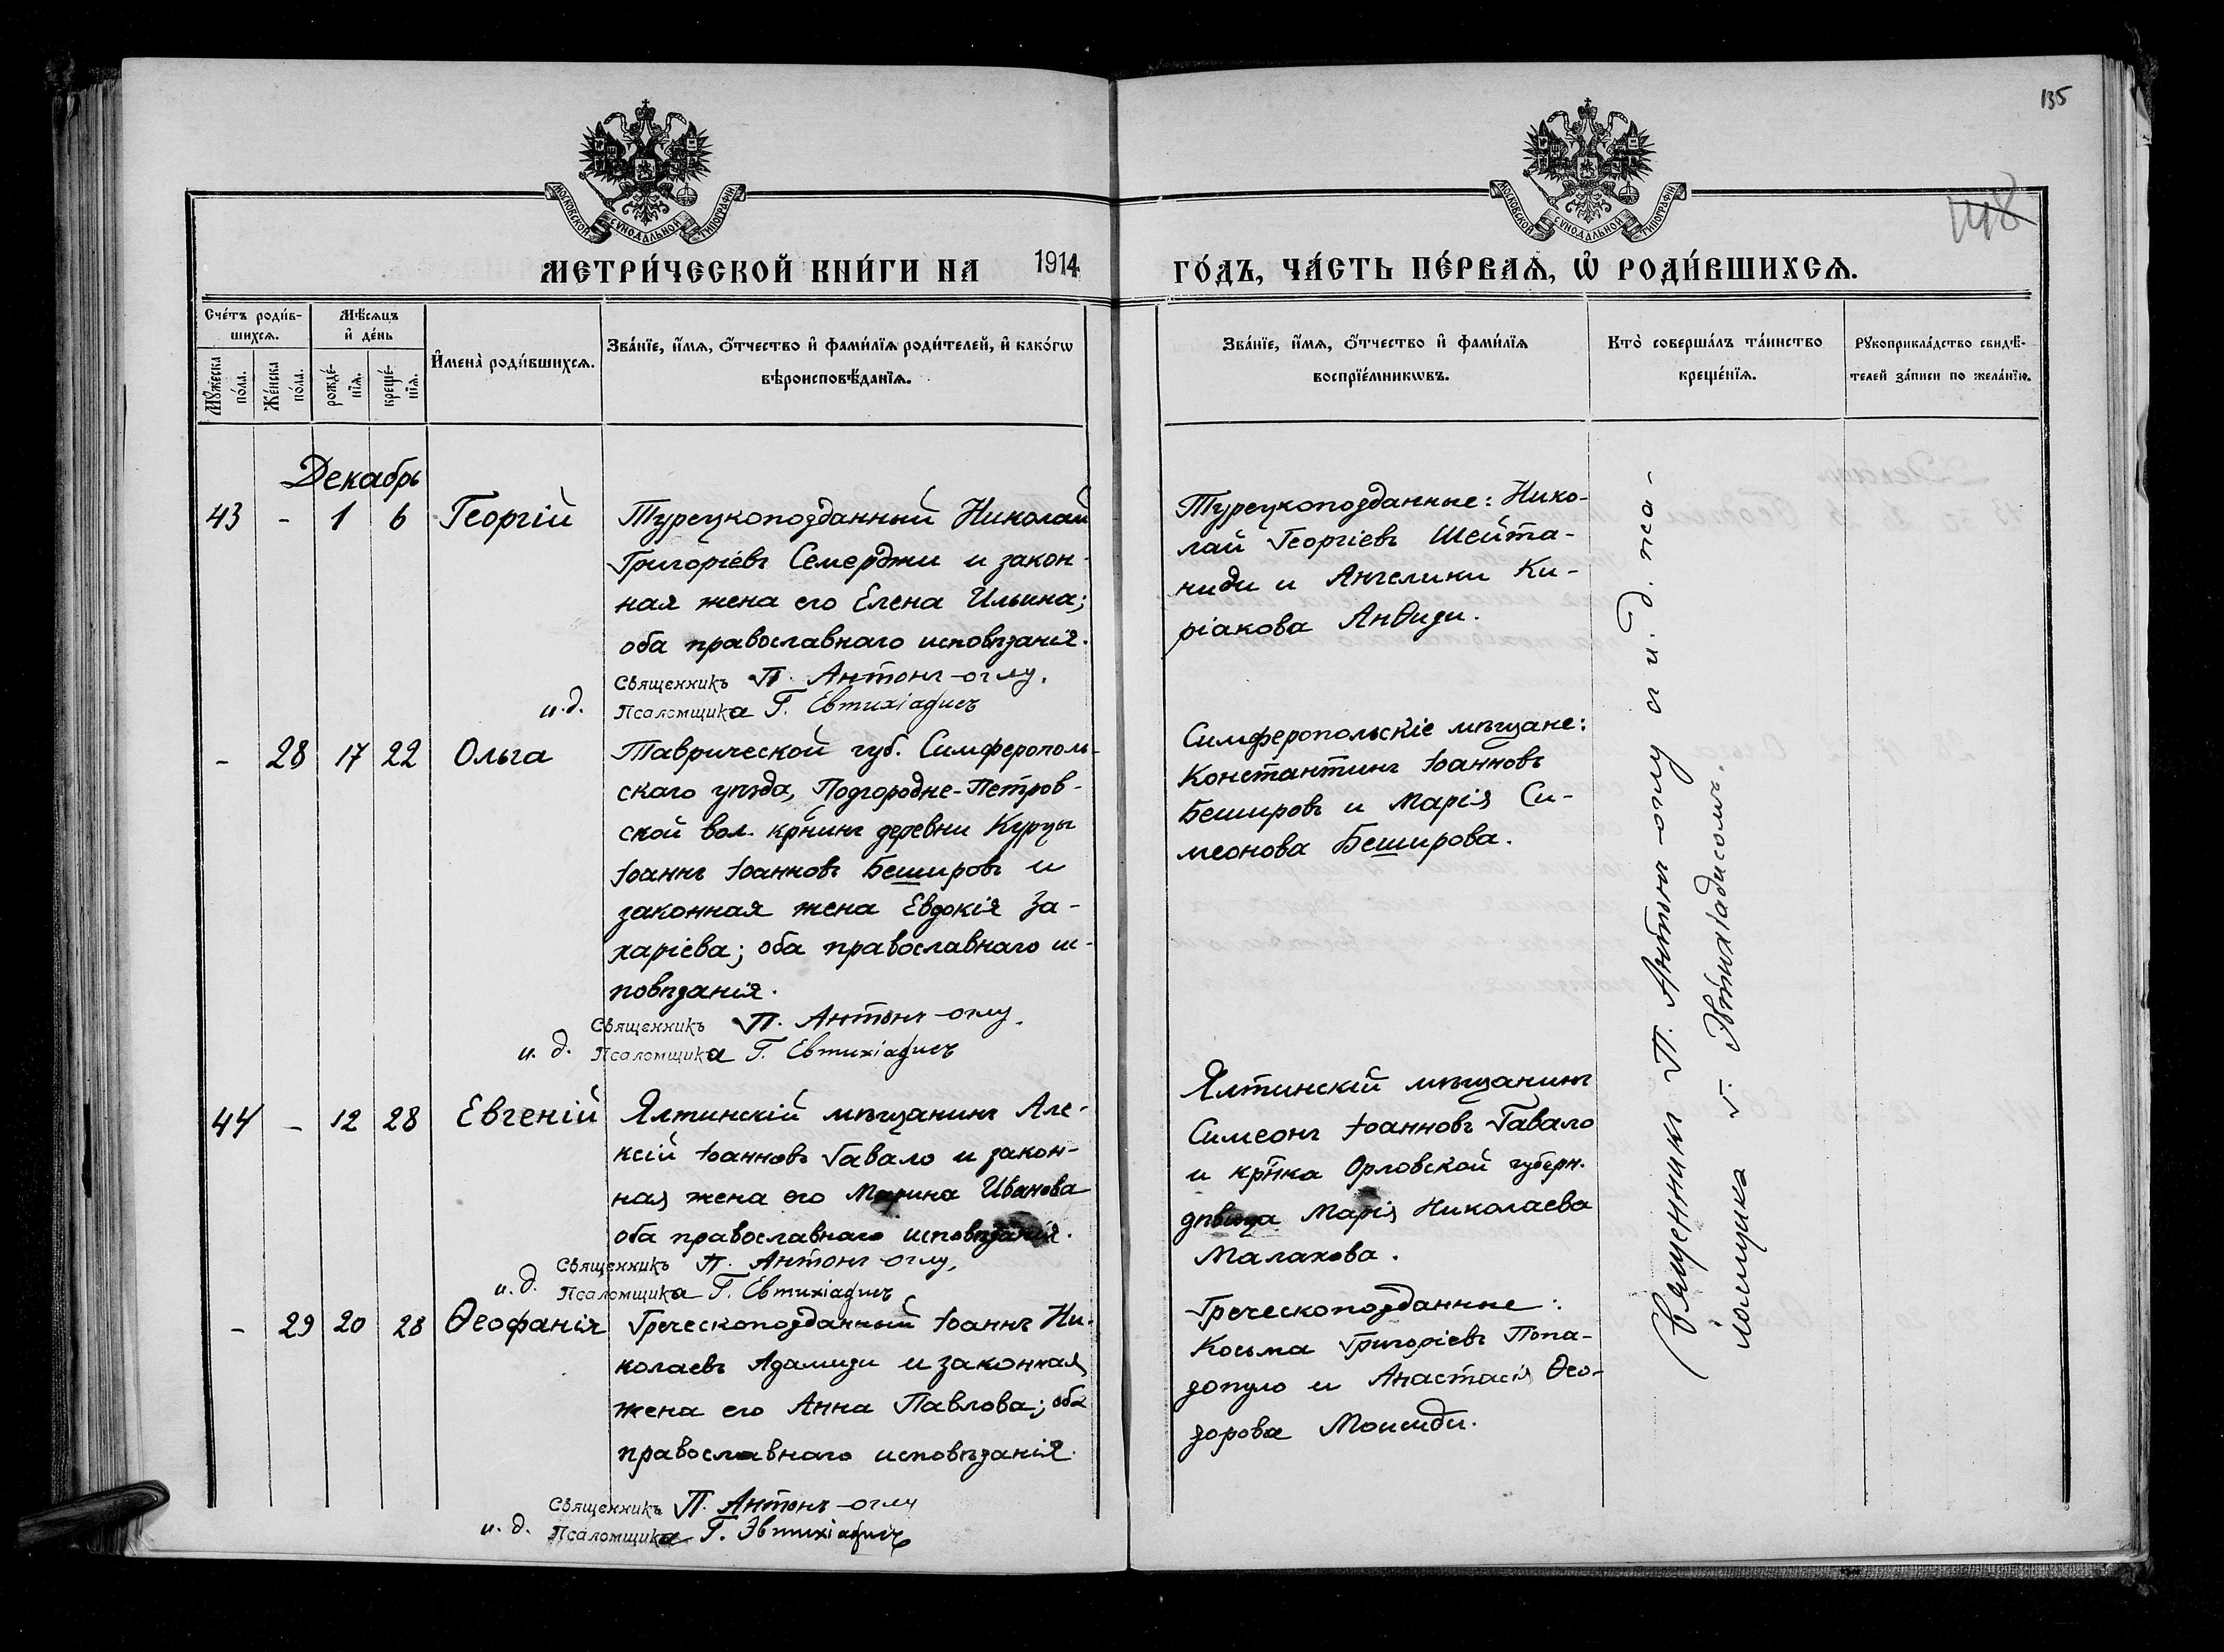 135
148
МОСКОВСКОЙ СѴНОДАЛЬНОЙ ТИПОГРАФІИ
МОСКОВСКОЙ СѴНОДАЛЬНОЙ ТИПОГРАФІИ
МЕТРИ́ЧЕСКОЙ КНИ́ГИ НА 1914 ГО́ДЪ, ЧА́СТЬ ПЕ́РВАѦ, Ѡ҆ РОДИ́ВШИХСѦ.
Сче́тъ роди́в-
шихсѧ.
Мꙋ́жеска
по́ла.
Же́нска
по́ла.
Мѣ́сѧцъ
и҆ де́нь
рожде́-
нїѧ.
креще́-
нїѧ.
И҆мена̀ роди́вшихсѧ.
Зва́нїе, и҆́мѧ, ѻ҆́тчество и҆ фами́лїѧ роди́телей, и҆ како́гѡ
вѣроисповѣ́данїѧ.
Зва́нїе, и҆́мѧ, ѻ҆́тчество и҆ фами́лїѧ
воспрїе́мникѡвъ.
Кто̀ соверша́лъ та́инство
креще́нїѧ.
Рꙋкоприкла́дство свидѣ́-
телей за́писи по жела́нїю.
Декабрь
43 - 1 6 Георгій
Турецкоподданный Николай
Григоріевъ Семерджи и закон-
ная жена его Елена Ильина;
оба православнаго исповѣданія.
Священникъ П. Антонъ-оглу.
и.д. Псаломщика Г. Евтихіадисъ
Турецкоподданные: Нико-
лай Георгіевъ Шейта-
ниди и Ангелики Ки-
ріакова Анѳиди.
- 28 17 22 Ольга
Таврической губ. Симферополь-
скаго уѣзда, Подгородне-Петров-
ской вол. кр̃нинъ деревни Курцы
Іоаннъ Іоанновъ Бешировъ и
законная жена Евдокія За-
харіева; оба православнаго ис-
повѣданія.
Священникъ П. Антонъ-оглу.
и. д. Псаломщика Г. Евтихіадисъ
Симферопольскіе мѣщане:
Константинъ Іоанновъ
Бешировъ и Марія Си-
меонова Беширова.
44 - 12 28 Евгеній
Ялтинскій мѣщанинъ Але-
ксій Іоанновъ Гавало и закон-
ная жена его Марина Иванова
оба православнаго исповѣданія.
Священникъ П. Антонъ-оглу,
и. д. Псаломщика Г. Евтихіадисъ
Ялтинскій мѣщанинъ
Симеонъ Іоанновъ Гавало
и кр̃нка Орловской губерн.
дѣвица Марія Николаева
Малахова.
- 29 20 28 Ѳеофанія
Греческоподданный Іоаннъ Ни-
колаевъ Адамиди и законная
жена его Анна Павлова; оба
православнаго исповѣданія.
Священникъ П. Антонъ-оглу
и. д. Псаломщика Г. Эвтихіадисъ
Греческоподданные:
Косьма Григоріевъ Попа-
допуло и Анастасія Ѳео-
дорова Моисиди.
Священникъ П. Антонъ-оглу съ и. д. пса-
ломщика Г. Эвтихіадисомъ.